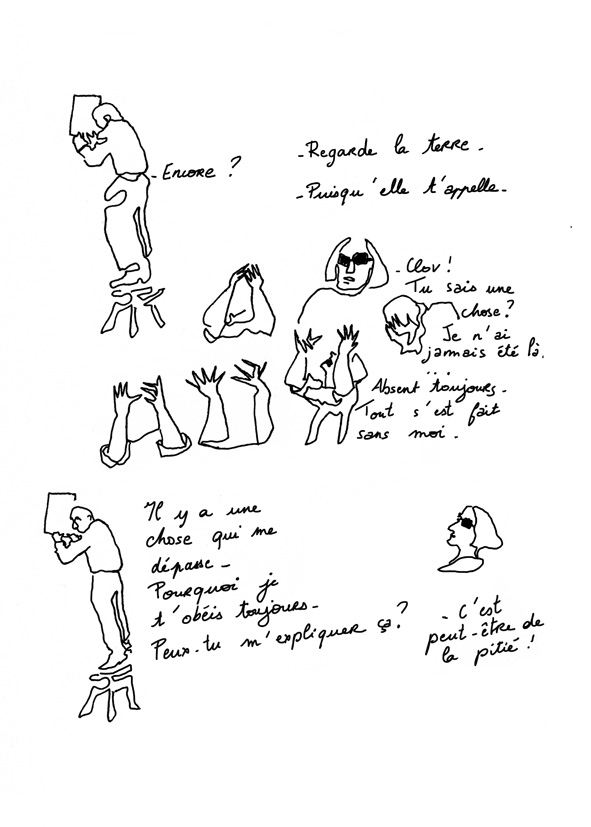 - Encore ?
- Regarde la terre -
- Puisqu'elle t'appelle -
- Clov !
Tu sais une
chose ?
Je n'ai
jamais été là.
...
Absent toujours -
Tout s'est fait
sans moi .
Il y a une
chose qui me
dépasse -
Pourquoi je
t'obéis toujours -
Peux-tu m'expliquer ça ?
- C'est
peut-être de
la pitié !